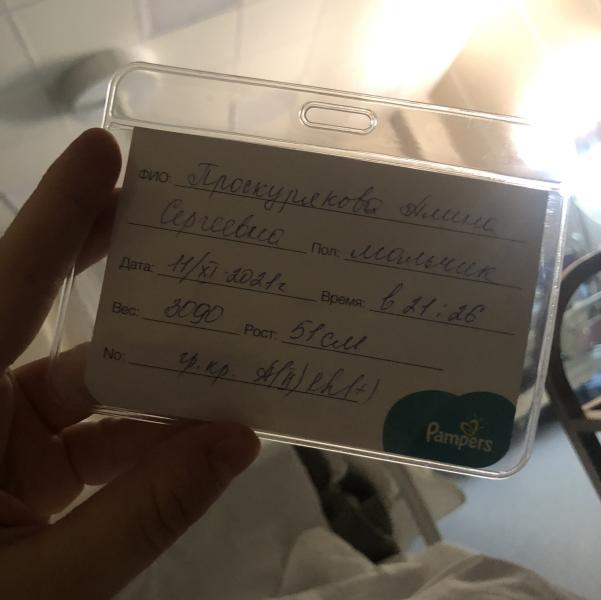 ФИО: Проскурякова Алина
Сергеевна Пол: мальчик
Дата: 11/XI-2021г Время: в 21:26
Вес: 3090 Рост: 51см
No: гр.кр. A(II) Rh(+)
Pampers